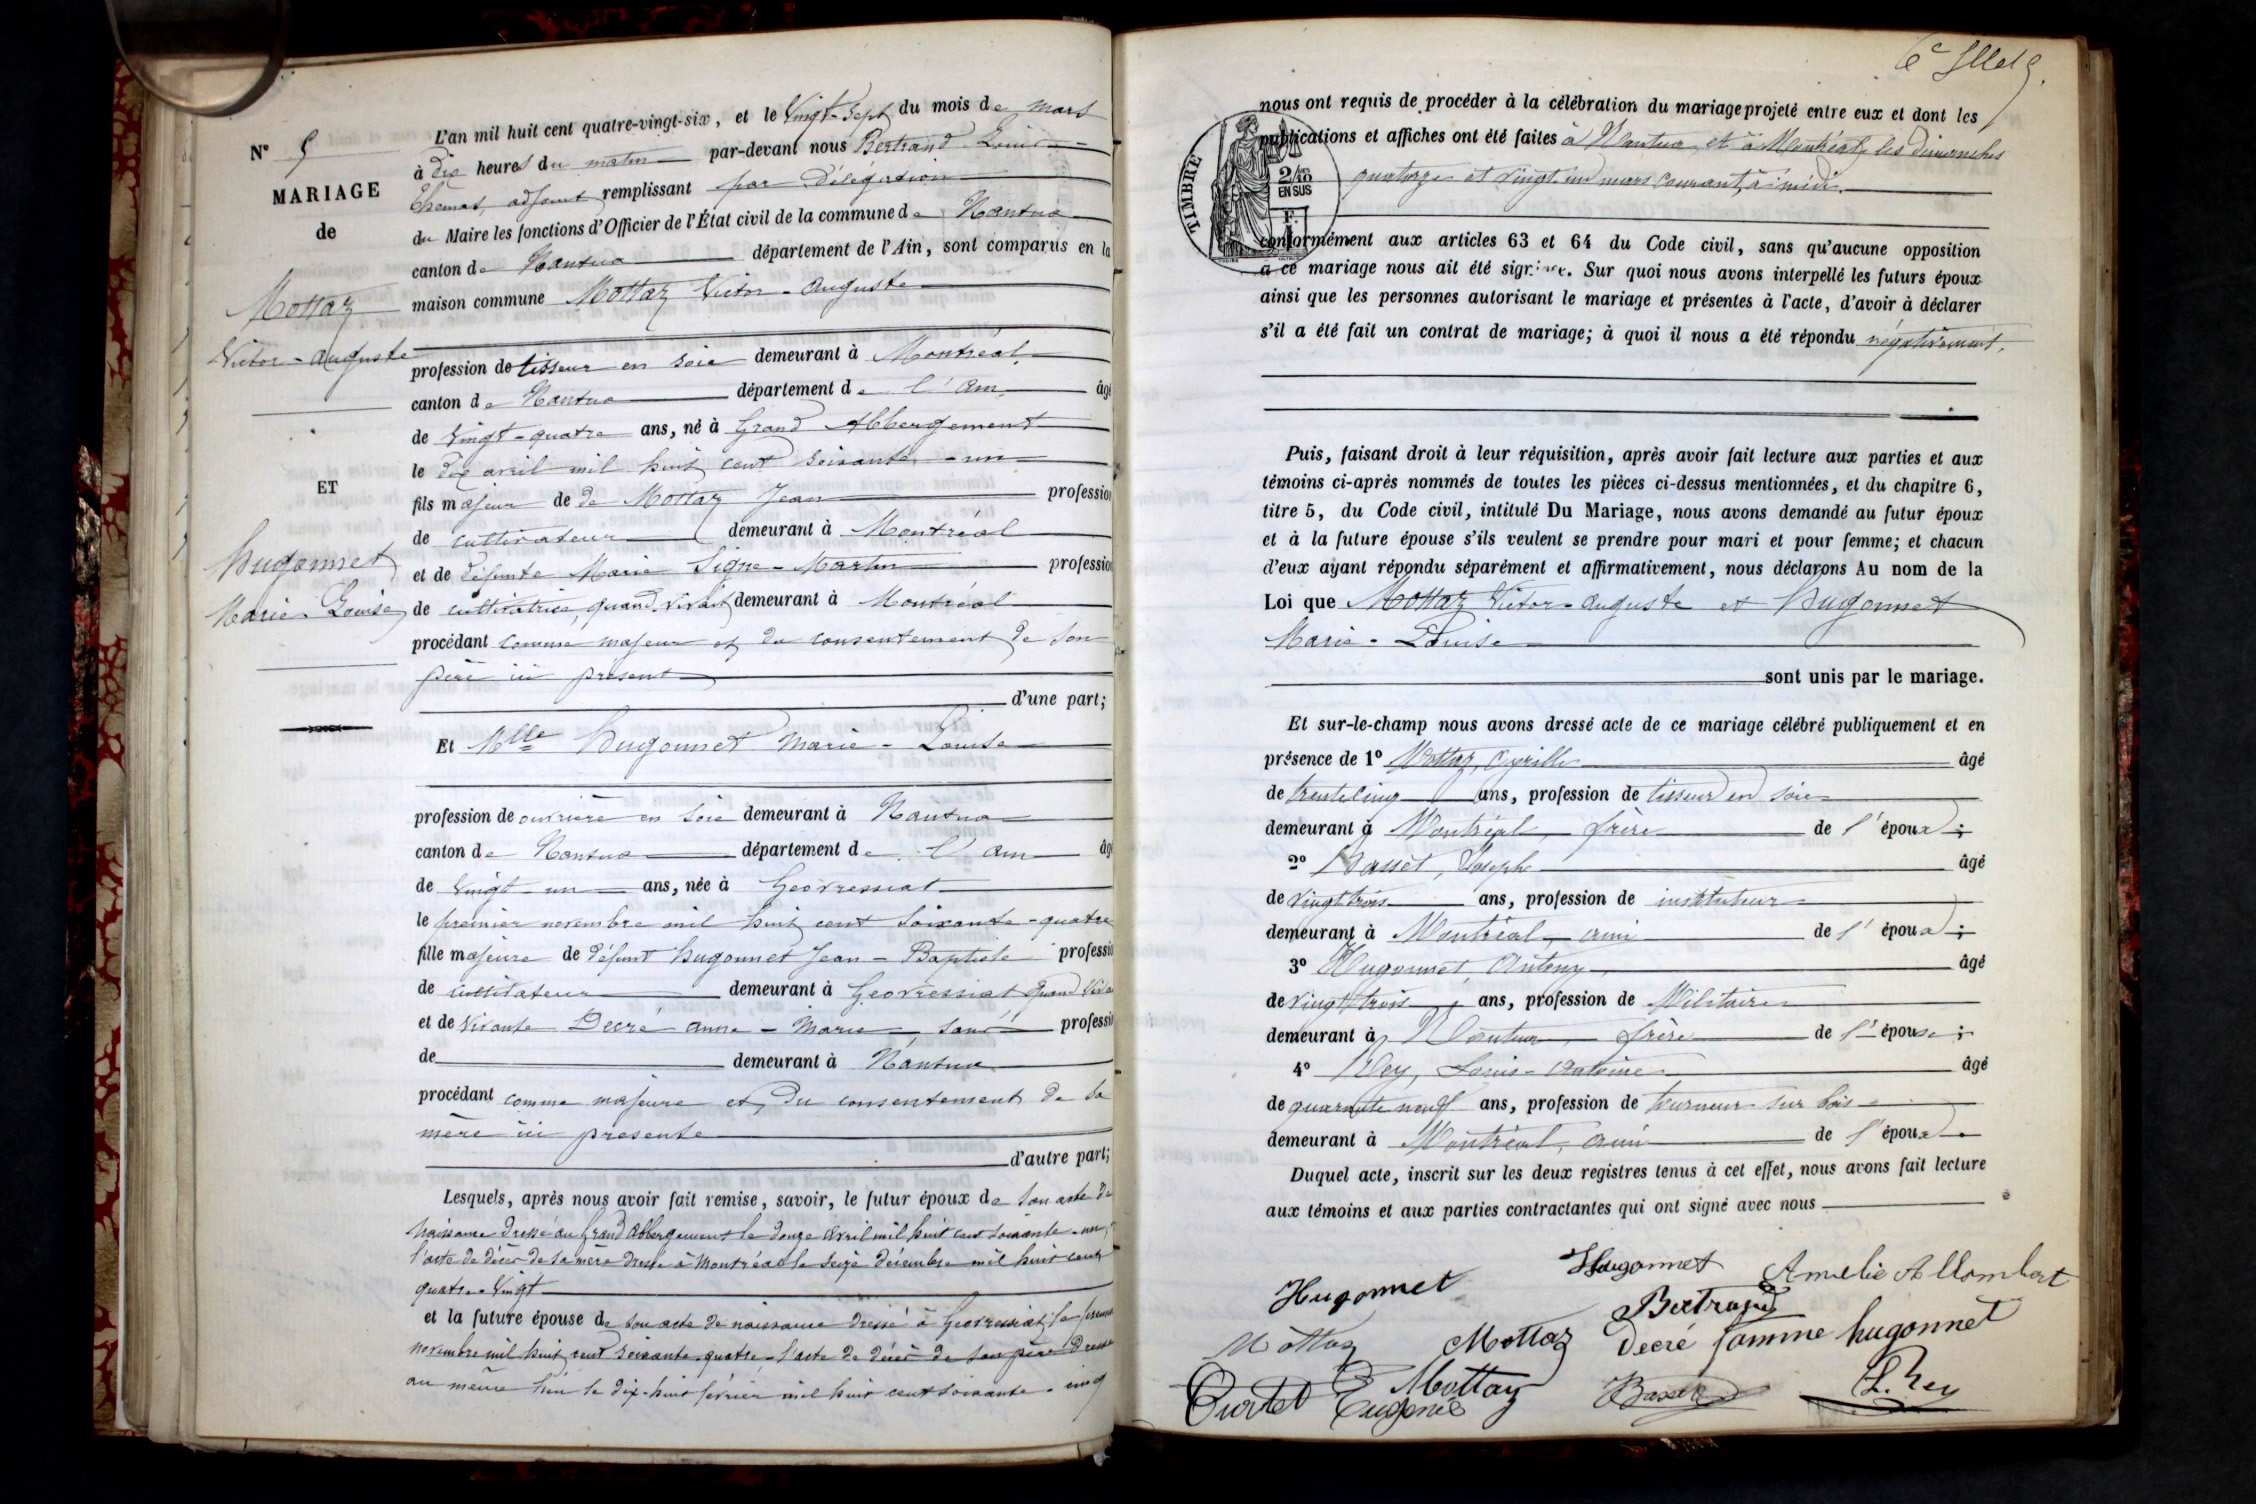 N° 5
MARIAGE
de
Mottaz
Victor-Auguste
ET
Hugonnet
Marie-Louise
L'an mil huit cent quatre-vingt-six, et le Vingt-Sept du mois de Mars
à dix heures du matin par-devant nous Bertrand Louis
adjoint remplissant par Délégation
du Maire les fonctions d'Officier de l'État civil de la commune de Nantua
canton de Nantua département de l'Ain, sont comparus en la
maison commune Mottaz Victor-Auguste
profession de tisseur en soie demeurant à Montréal
canton de Nantua département de l'Ain âgé
de Vingt-quatre ans, né à Grand Abbergement
le dix avril mil huit cent soixante-un
fils majeur de de Mottaz Jean profession
de cultivateur demeurant à Montréal
et de défunte Marie Signe-Martin profession
de cultivatrice, quand vivait demeurant à Montréal
procédant comme majeur et du consentement de son
père ici présent
d'une part;
Et Mlle Hugonnet Marie-Louise
profession de ouvrière en soie demeurant à Nantua
canton de Nantua département de l'Ain âgé
de Vingt-un ans, née à Géovressiat
le premier novembre mil huit cent soixante-quatre
fille majeure de défunt Hugonnet Jean-Baptiste professio
de cultivateur demeurant à Géovressiat quand viva
et de vivante Decré Anne-Marie sans professi
de demeurant à Nantua
procédant comme majeure et du consentement de sa
mère ici présente
d'autre part;
Lesquels, après nous avoir fait remise, savoir, le futur époux de son acte de
naissance dressé au Grand Abbergement le douze avril mil huit cent soixante-un,
l'acte de décès de sa mère dressé à Montréal le seize décembre mil huit cent
quatre-vingt
et la future épouse de son acte de naissance dressé à Géovressiat, le premier
novembre mil huit cent soixante-quatre, l'acte de décès de son père dressé
au même lieu le dix-huit février mil huit cent soixante-cinq
nous ont requis de procéder à la célébration du mariage projeté entre eux et dont les
publications et affiches ont été faites à Nantua et à Montréal, les dimanches
quatorze et vingt-un mars courant, à midi.
TIMBRE
2/10
EN SUS
conformément aux articles 63 et 64 du Code civil, sans qu'aucune opposition
à ce mariage nous ait été signifiée. Sur quoi nous avons interpellé les futurs époux
ainsi que les personnes autorisant le mariage et présentes à l'acte, d'avoir à déclarer
s'il a été fait un contrat de mariage; à quoi il nous a été répondu négativement.
Puis, faisant droit à leur réquisition, après avoir fait lecture aux parties et aux
témoins ci-après nommés de toutes les pièces ci-dessus mentionnées, et du chapitre 6,
titre 5, du Code civil, intitulé Du Mariage, nous avons demandé au futur époux
et à la future épouse s'ils veulent se prendre pour mari et pour femme; et chacun
d'eux ayant répondu séparément et affirmativement, nous déclarons Au nom de la
Loi que Mottaz Victor-Auguste et Hugonnet
Marie-Louise
sont unis par le mariage.
Et sur-le-champ nous avons dressé acte de ce mariage célébré publiquement et en
présence de 1° Mottaz, Cyrille âgé
de trente cinq ans, profession de tisseur en soie
demeurant à Montréal, frère de l'époux;
2° Basset, Joseph âgé
de vingt trois ans, profession de instituteur
demeurant à Montréal, ami de l'époux;
3° Hugonnet Antony âgé
de vingt trois ans, profession de Militaire
demeurant à Nantua, frère de l'épouse;
4° Rey, Louis-Antoine âgé
de quarante neuf ans, profession de tourneur sur bois
demeurant à Montréal, ami de l'époux.
Duquel acte, inscrit sur les deux registres tenus à cet effet, nous avons fait lecture
aux témoins et aux parties contractantes qui ont signé avec nous
Hugonnet Hugonnet Amelie Allombert
Bertrand
Mottaz Mottaz Decré famme hugonnet
Mottaz Eugénie Basset L. Rey